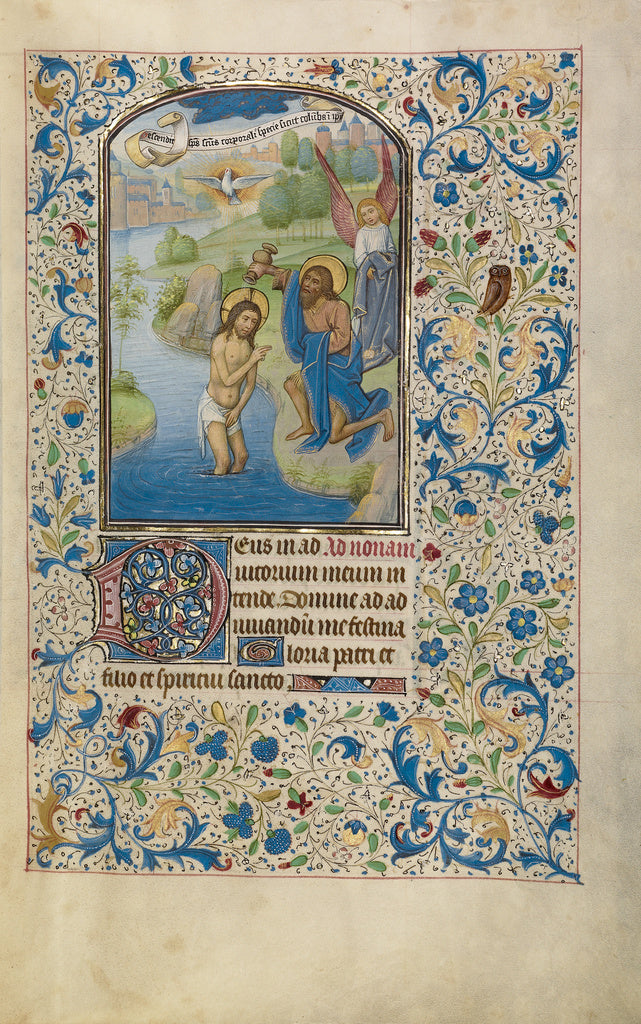 escendit sp̄s sc̄us corporali specie sicut columba ī ip̄
Eus in ad Ad nonam
iutorium meum in
tende. Domine ad ad
iuuandū me festina
Gloria patri et
filio et spiritui sancto.